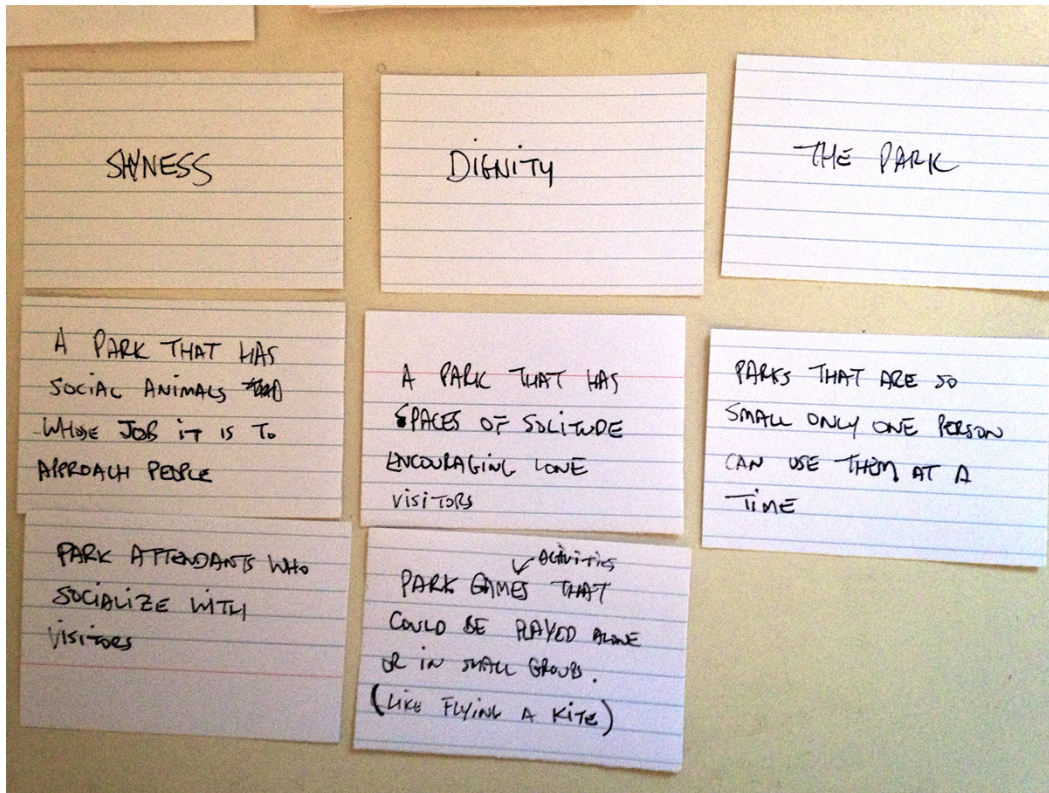 SHYNESS
DIGNITY
THE PARK
A PARK THAT HAS
SOCIAL ANIMALS
WHOSE JOB IT IS TO
APPROACH PEOPLE
A PARK THAT HAS
SPACES OF SOLITUDE
ENCOURAGING LONE
VISITORS
PARKS THAT ARE SO
SMALL ONLY ONE PERSON
CAN USE THEM AT A
TIME
PARK ATTENDANTS WHO
SOCIALIZE WITH
VISITORS
ACTIVITIES
PARK GAMES THAT
COULD BE PLAYED ALONE
OR IN SMALL GROUPS.
(LIKE FLYING A KITE)